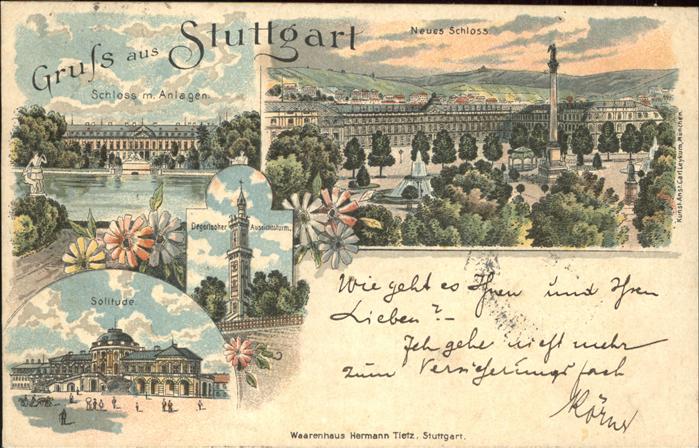 Gruss aus Stuttgart
Neues Schloss
Schloss m. Anlagen.
Degerlocher Aussichtsturm.
Solitude.
Wie geht es Ihnen und Ihren
Lieben? –
Ich gehe nicht mehr
zum Versicherungsfach
Waarenhaus Hermann Tietz, Stuttgart.